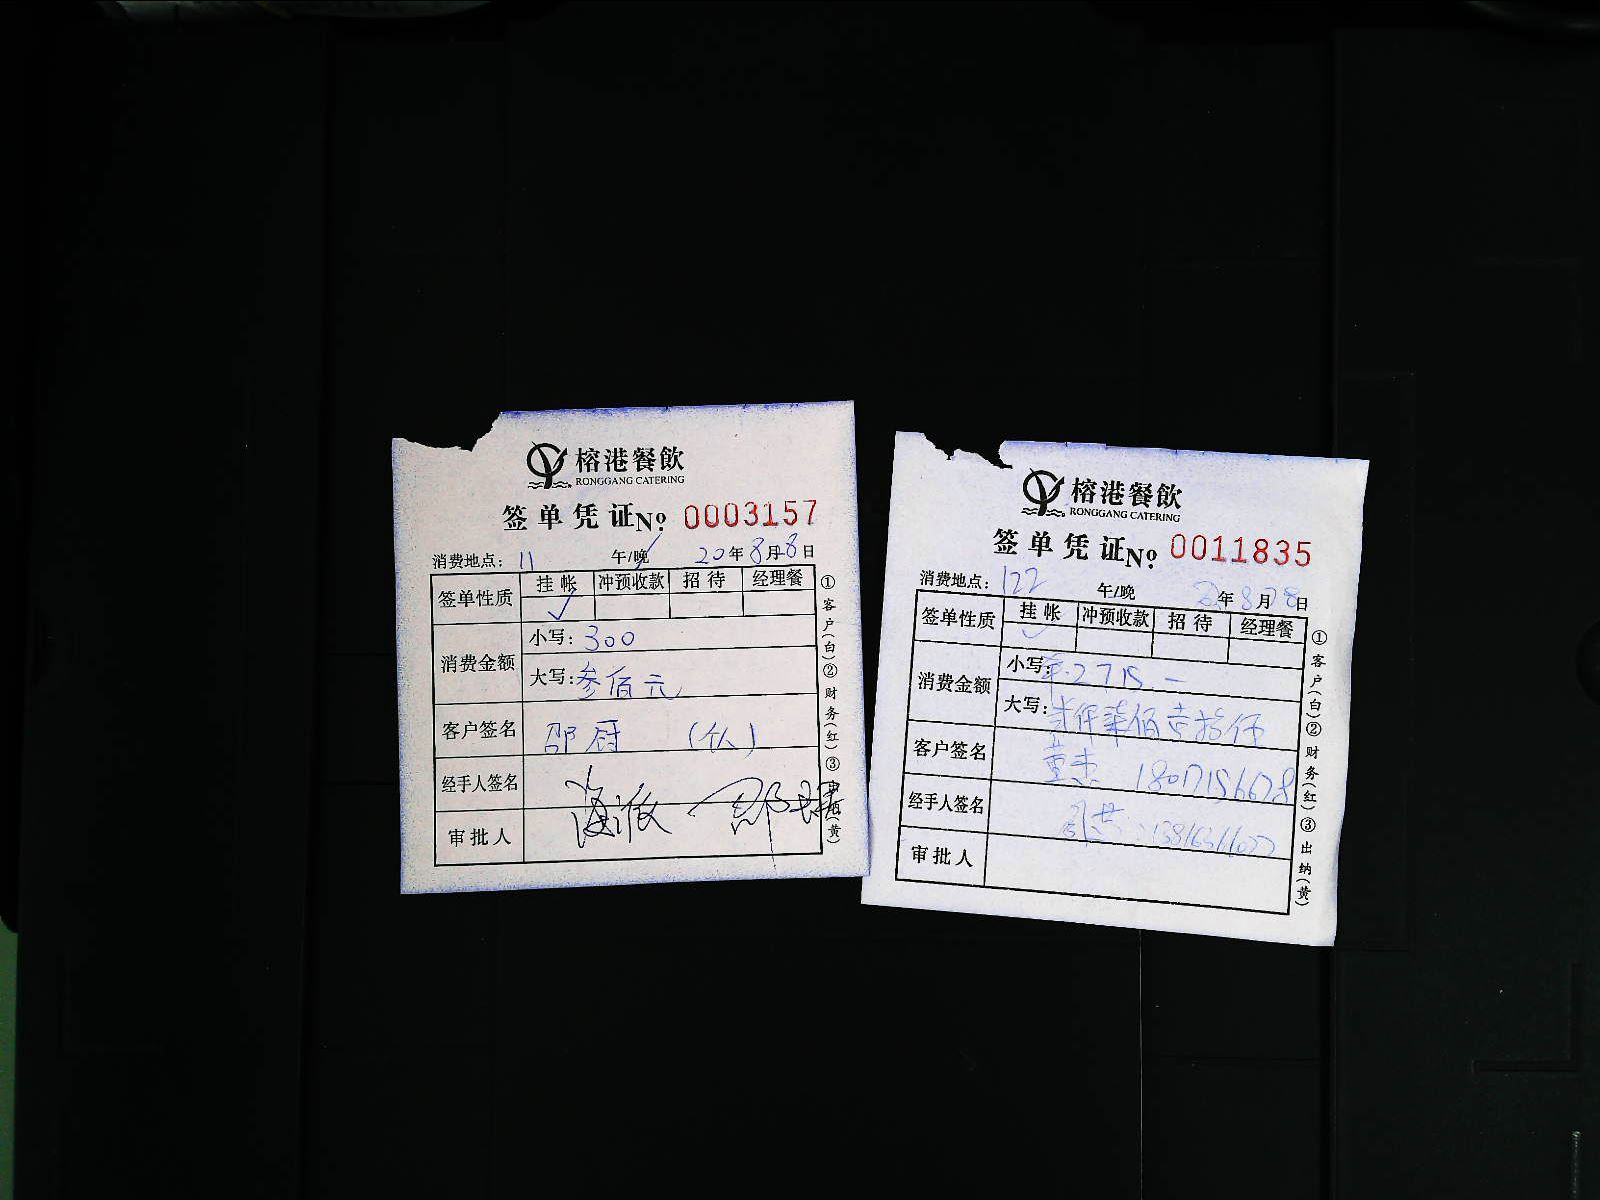 榕港餐飲
RONGGANG CATERING
签单凭证 No. 0003157
消费地点: 11 午/晚 20年8月8日
签单性质 挂帐 冲预收款 招待 经理餐
✓
消费金额 小写: 300
大写: 参佰元
客户签名 邵厨
经手人签名
审批人
①客户(白)②财务(红)③出纳(黄)
榕港餐飲
RONGGANG CATERING
签单凭证 No. 0011835
消费地点: 122 午/晚 年8月28日
签单性质 挂帐 冲预收款 招待 经理餐
✓
消费金额 小写: 2715.—
大写: 仟柒佰壹拾伍
客户签名 董杰 18017156678
经手人签名
审批人
①客户(白)②财务(红)③出纳(黄)